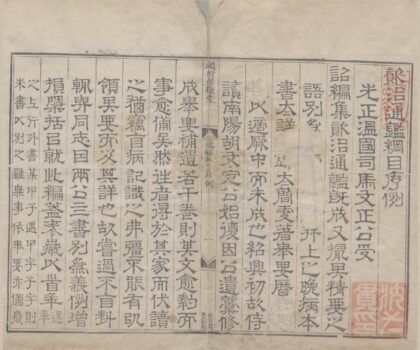 資治通鑑綱目序例
先正溫國司馬文正公受
詔編集資治通鑑既成又撮其精要之
語別為 并上之晚病本
書太詳 太簡更著舉要曆
以適厥中而未成也紹興初故侍
讀南陽胡文定公始復因公遺藁修
成舉要補遺若干卷則其文愈約而
事愈備矣然往者得於其家而伏讀
之猶竊自病記識之弗彊不能有以
領其要而及其詳也故嘗過不自料
輒與同志因兩公四書別為義例增
損檃括以就此編蓋表歲以首年
之上行外書某甲子遇甲字子字則
朱書以別之雖無事依舉要亦備歲